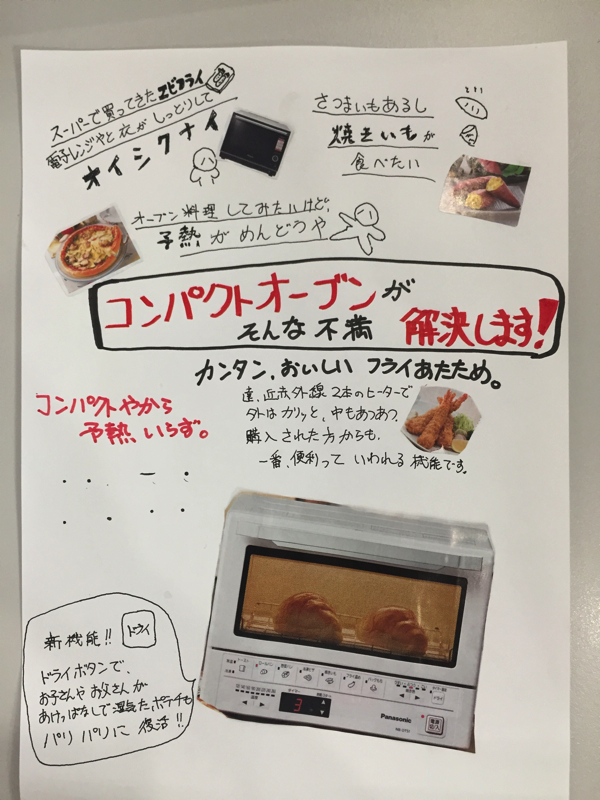 スーパーで買ってきたエビフライ
電子レンジやと衣がしっとりして
オイシクナイ
さつまいもあるし
焼きいもが
食べたい
オーブン料理してみたいけど、
予熱がめんどうや
コンパクトオーブンが
そんな不満 解決します!
カンタン、おいしい フライあたため。
コンパクトやから
予熱、いらず。
遠、近赤外線 2本のヒーターで
外はカリッと、中もあつあつ。
購入された方からも、
一番、便利って いわれる 機能です。
新機能!! ドライ
ドライボタンで、
お子さんやお父さんが
あけっぱなしで湿気たポテーチも
パリパリに 復活!!
3
Panasonic